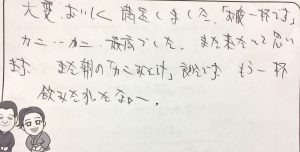 大変、おいしく 満足しました。「お腹一杯です」
カニ・・カニ 最高でした。 また来たいと思い
ます。 また朝の「カニみそ汁」 です もう一杯
飲みたかったなー。